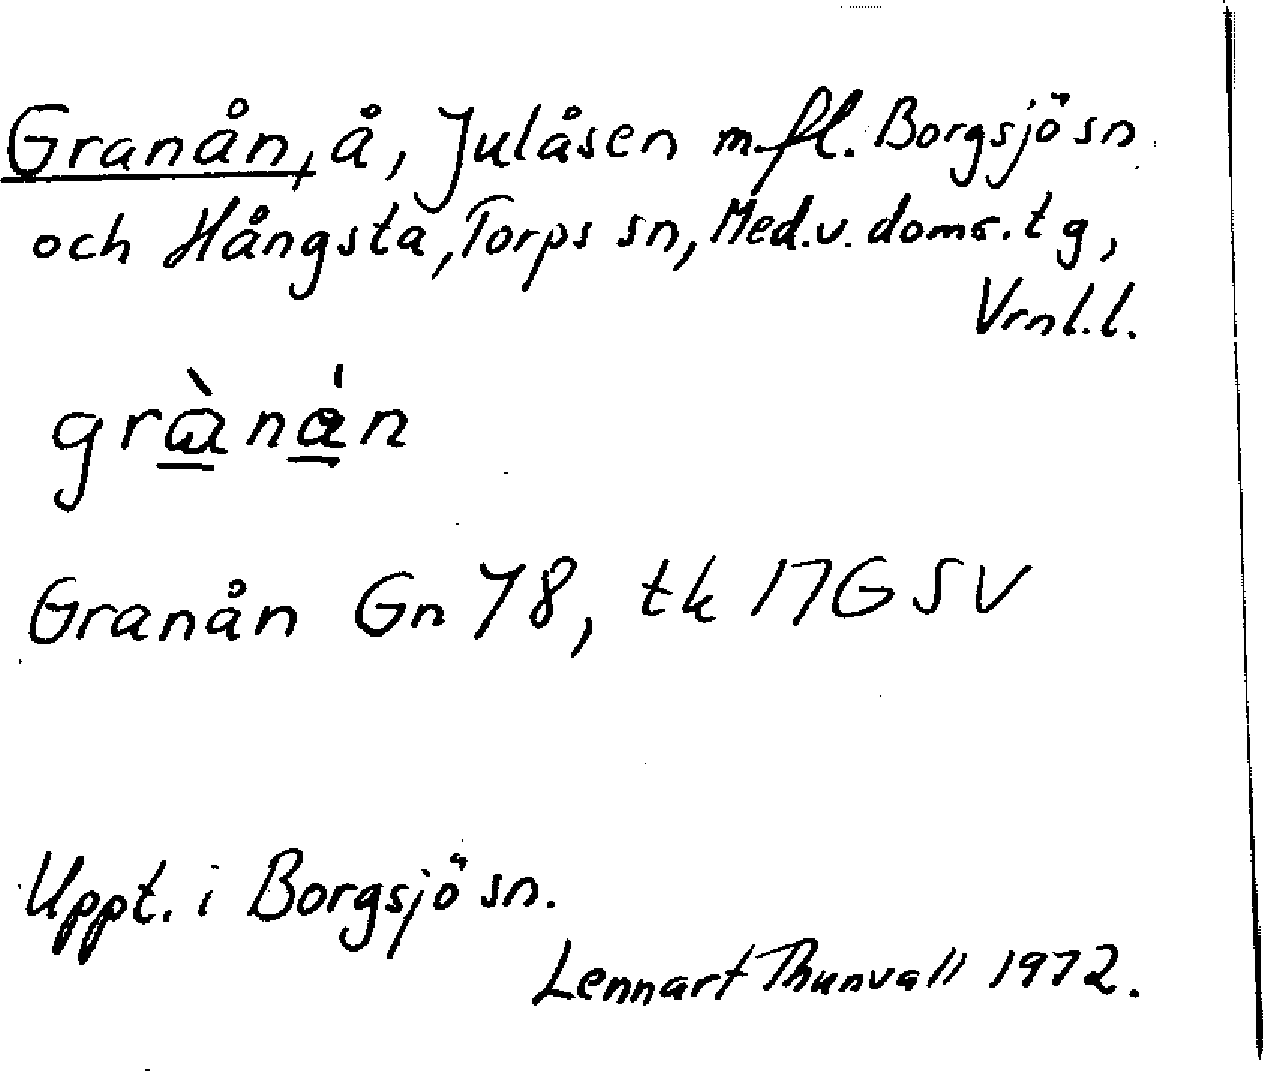 Granån, å, Julåsen m.fl. Borgsjö sn
och Hångsta, Torps sn, Med.v. doms.tg,
Vrnl.l.
grànán
Granån Gn 78, tk 17G SV
Uppt. i Borgsjö sn.
Lennart Thunvall 1972.